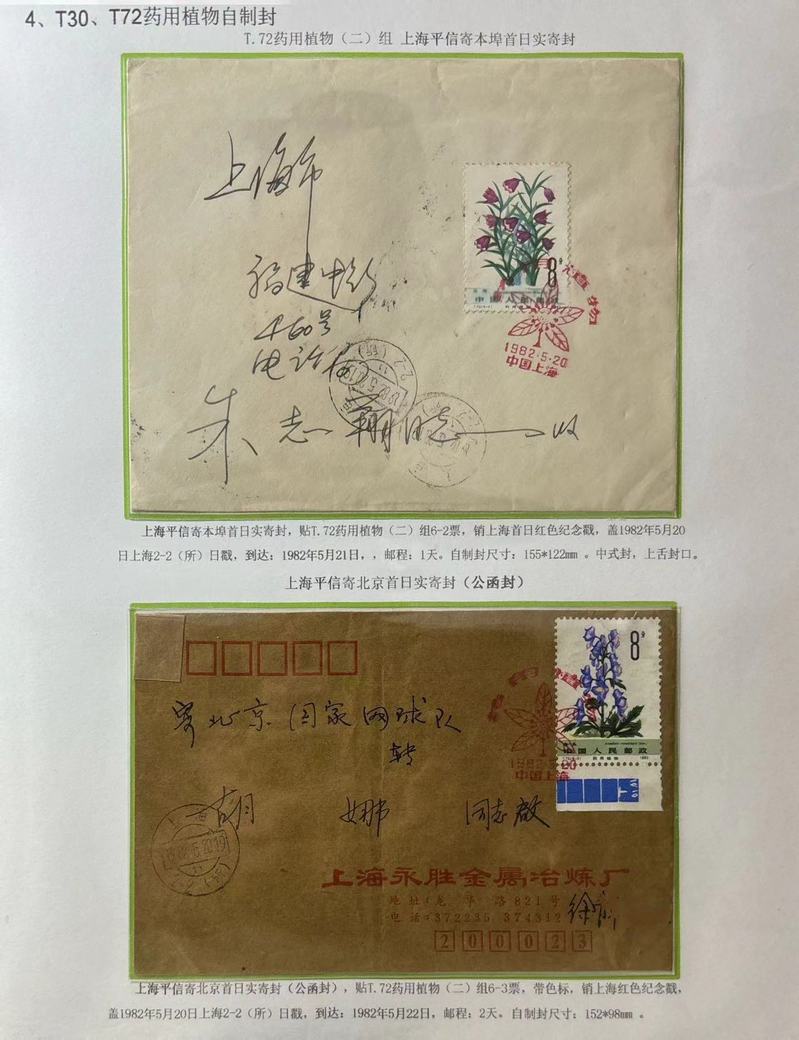 4、T30、T72药用植物自制封
T.72药用植物（二）组 上海平信寄本埠首日实寄封
上海市
福建中路
460号
电话
朱志翔同志 收
8分
中国人民邮政
药用植物
1982·5·20
中国上海
上海平信寄本埠首日实寄封，贴T.72药用植物（二）组6-2票，销上海首日红色纪念戳，盖1982年5月20
日上海2-2（所）日戳，到达：1982年5月21日，，邮程：1天。自制封尺寸：155*122mm 。中式封，上舌封口。
上海平信寄北京首日实寄封（公函封）
8分
中国人民邮政
药用植物
1982·5·20
中国上海
寄北京国家网球队
转
胡 娜 同志啟
上海永胜金属冶炼厂
地址:龙华路821号
电话:372235 374312
徐
200023
上海平信寄北京首日实寄封（公函封），贴T.72药用植物（二）组6-3票，带色标，销上海红色纪念戳，
盖1982年5月20日上海2-2（所）日戳，到达：1982年5月22日，邮程：2天。自制封尺寸：152*98mm 。